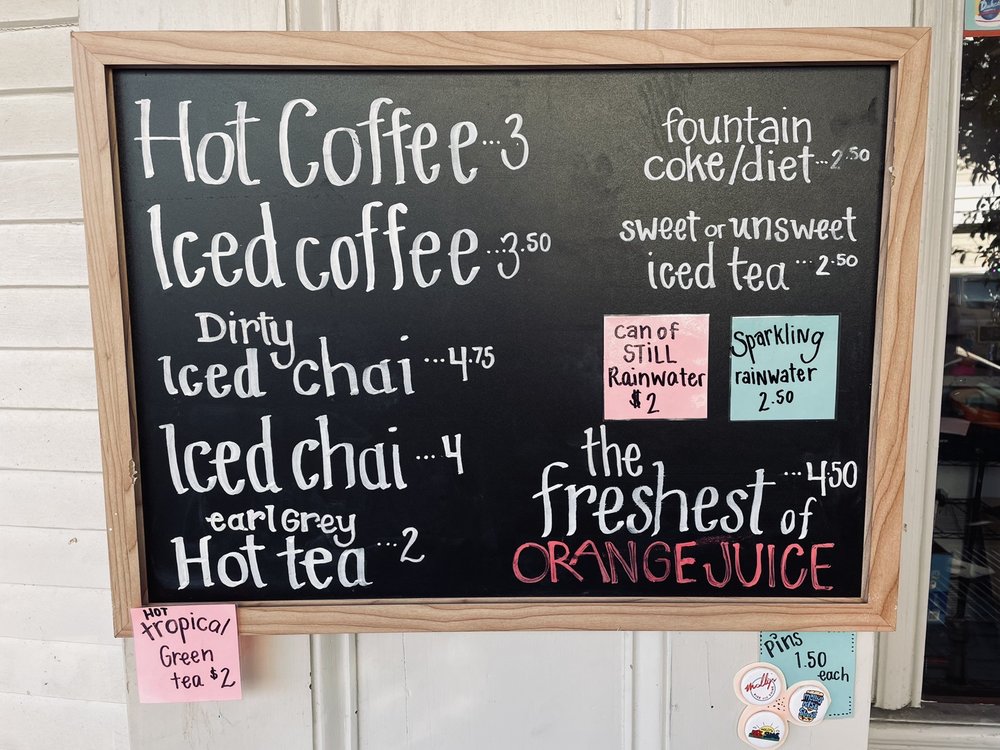 Hot Coffee...3
Iced coffee...3.50
Dirty
Iced chai...4.75
Iced chai...4
earl Grey
Hot tea...2
fountain
coke/diet...2.50
sweet or unsweet
iced tea...2.50
can of
STiLL
Rainwater
$2
Sparkling
rainwater
2.50
the
freshest of ...4.50
ORANGE JUICE
HOT
tropical
Green
tea $2
pins
1.50
each
molly's